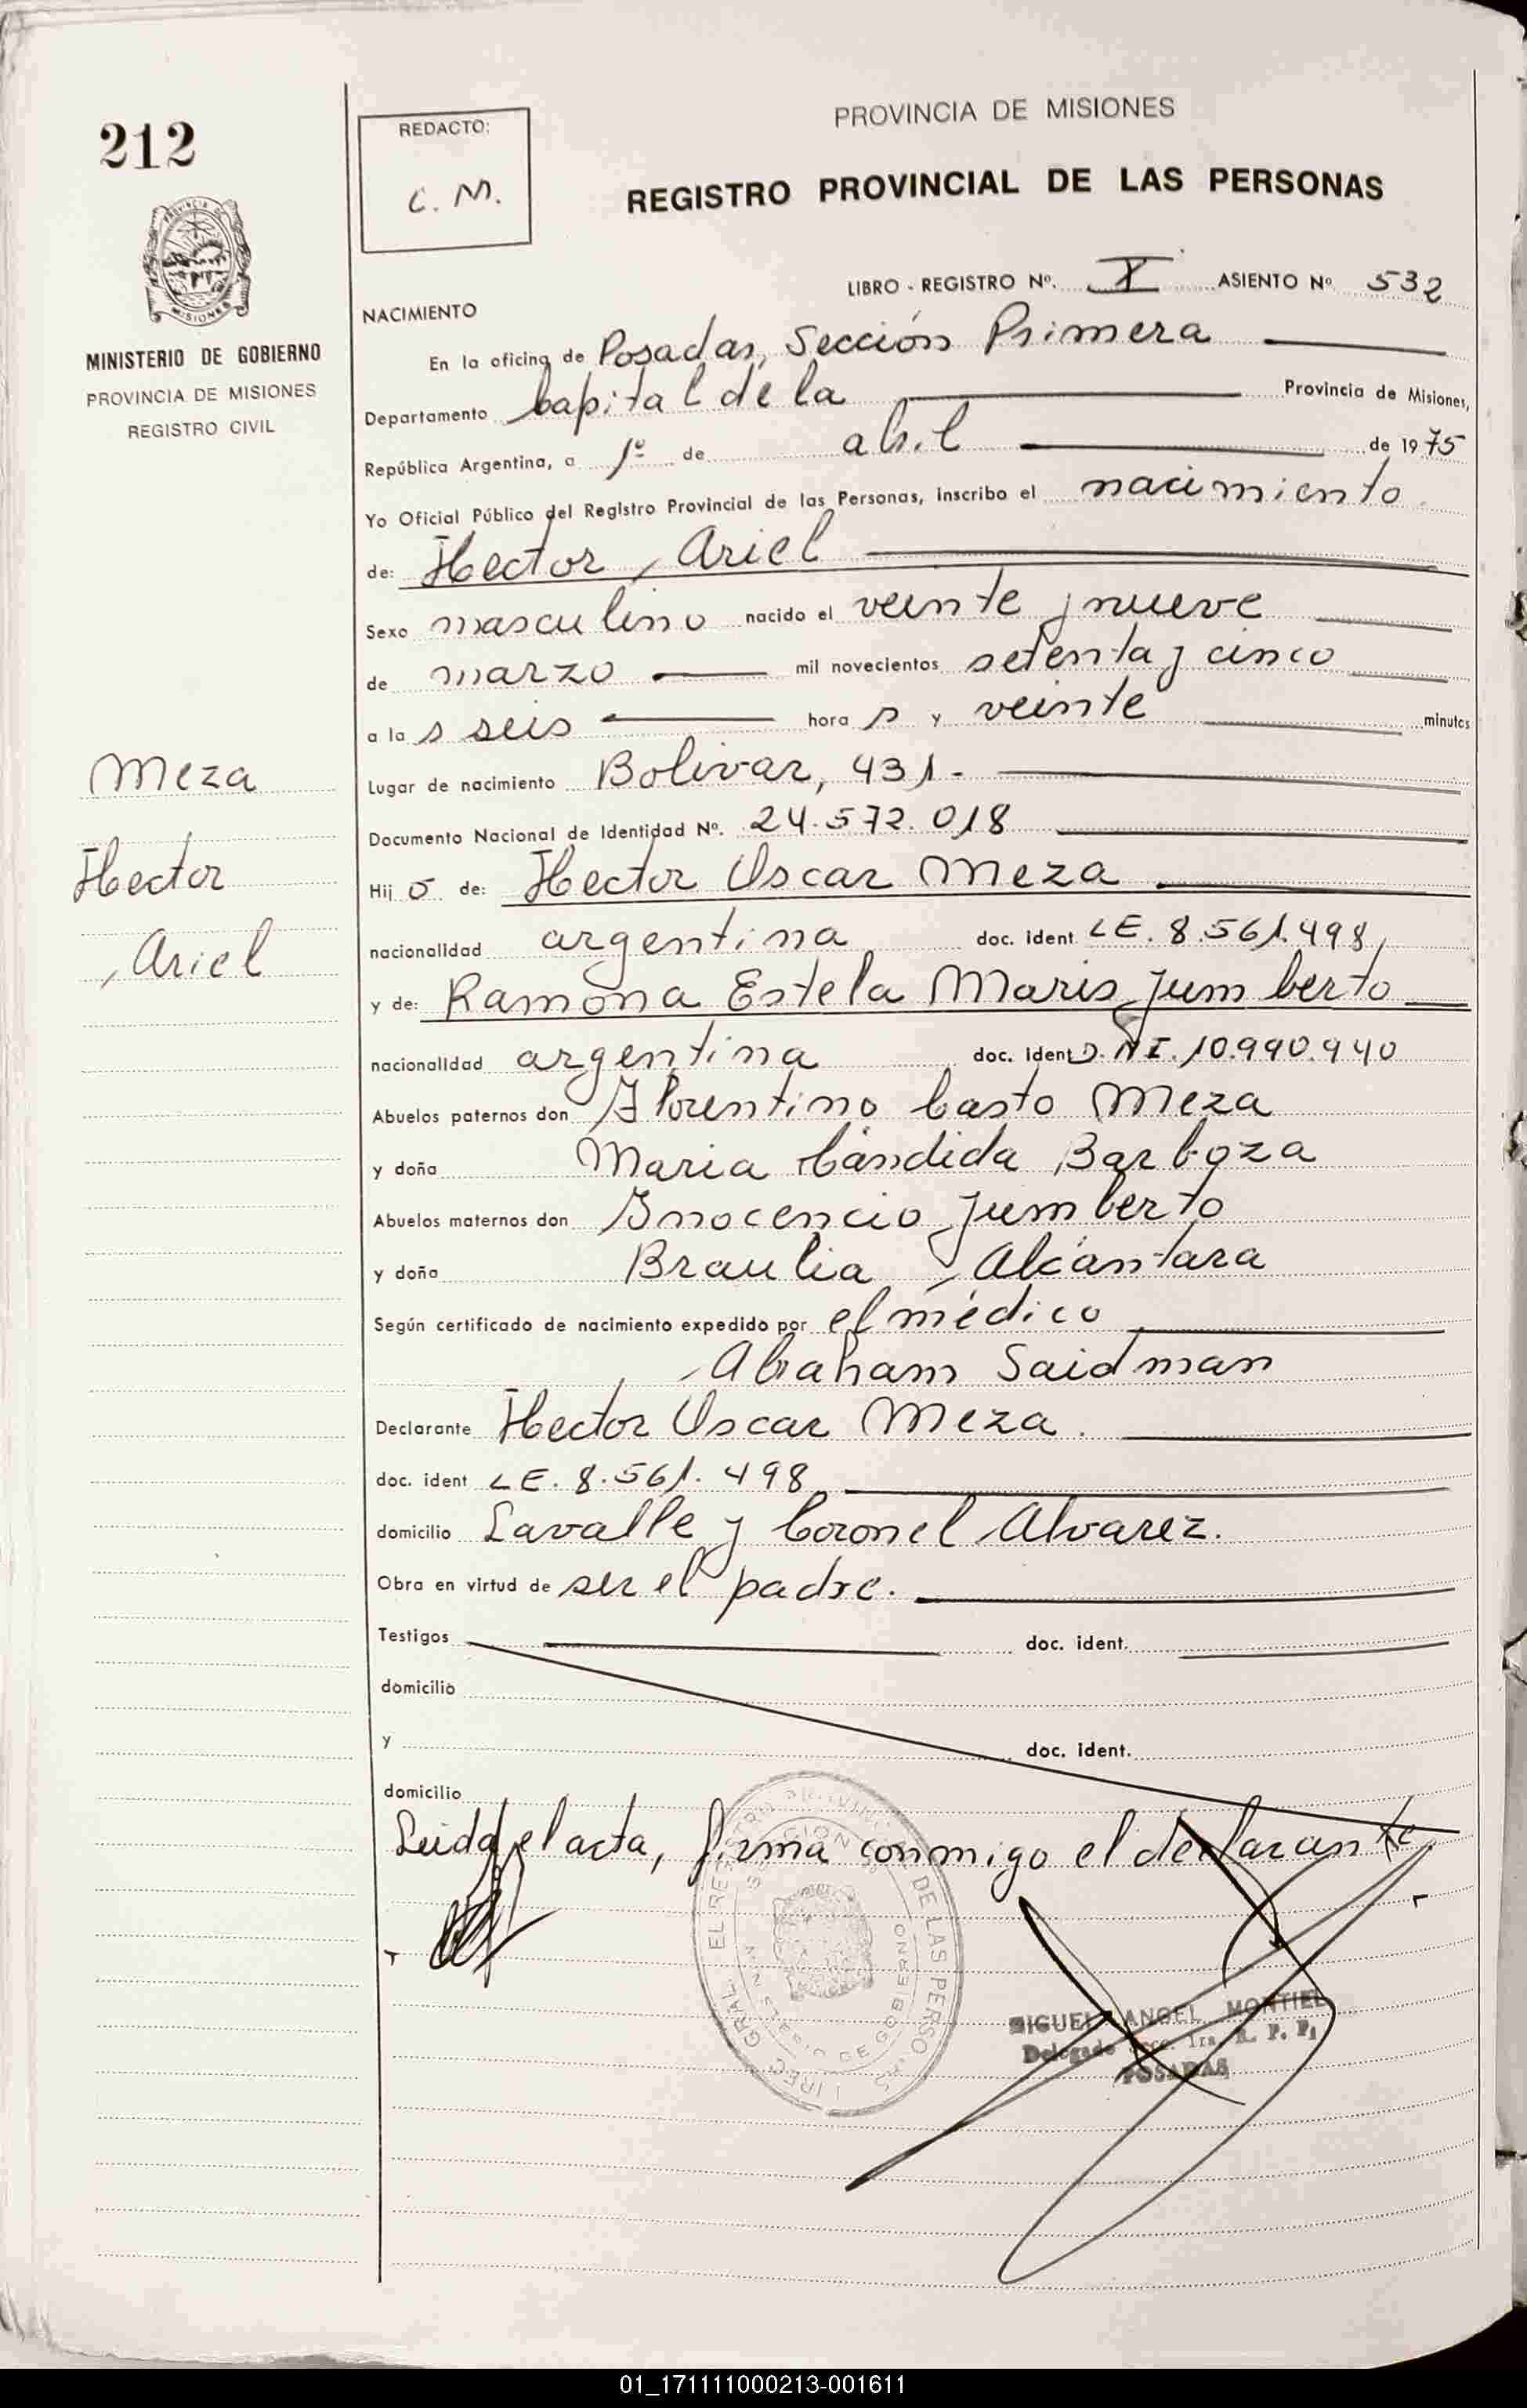 212
MINISTERIO DE GOBIERNO
PROVINCIA DE MISIONES
REGISTRO CIVIL
Meza
Hector
Ariel
REDACTO:
C. M.
PROVINCIA DE MISIONES
REGISTRO PROVINCIAL DE LAS PERSONAS
LIBRO - REGISTRO Nº. I ASIENTO Nº 532
NACIMIENTO
En la oficina de Posadas, Sección Primera
Departamento Capital de la Provincia de Misiones,
República Argentina, a 1º de abril de 1975
Yo Oficial Público del Registro Provincial de las Personas, inscribo el nacimiento
de: Hector Ariel
Sexo masculino nacido el veinte y nueve
de marzo mil novecientos setenta y cinco
a la s seis hora s y veinte minutos
Lugar de nacimiento Bolivar, 431.-
Documento Nacional de Identidad Nº. 24.572.018
Hij o de: Hector Oscar Meza
nacionalidad argentina doc. ident LE. 8.561.498,
y de: Ramona Estela Maris Jumberto
nacionalidad argentina doc. ident D.NI. 10.990.940
Abuelos paternos don Florentino Casto Meza
y doña Maria Cándida Barboza
Abuelos maternos don Inocencio Jumberto
y doña Braulia Alcántara
Según certificado de nacimiento expedido por el médico
Abraham Saidman
Declarante Hector Oscar Meza.
doc. ident LE. 8.561.498
domicilio Lavalle y Coronel Alvarez.
Obra en virtud de ser el padre.
Testigos doc. ident.
domicilio
y doc. ident.
domicilio
Leida el acta, firma conmigo el declarante
MIGUEL ANGEL MONTIEL
Delegado Secc. 1ra. R. P. P.
POSADAS
01_171111000213-001611